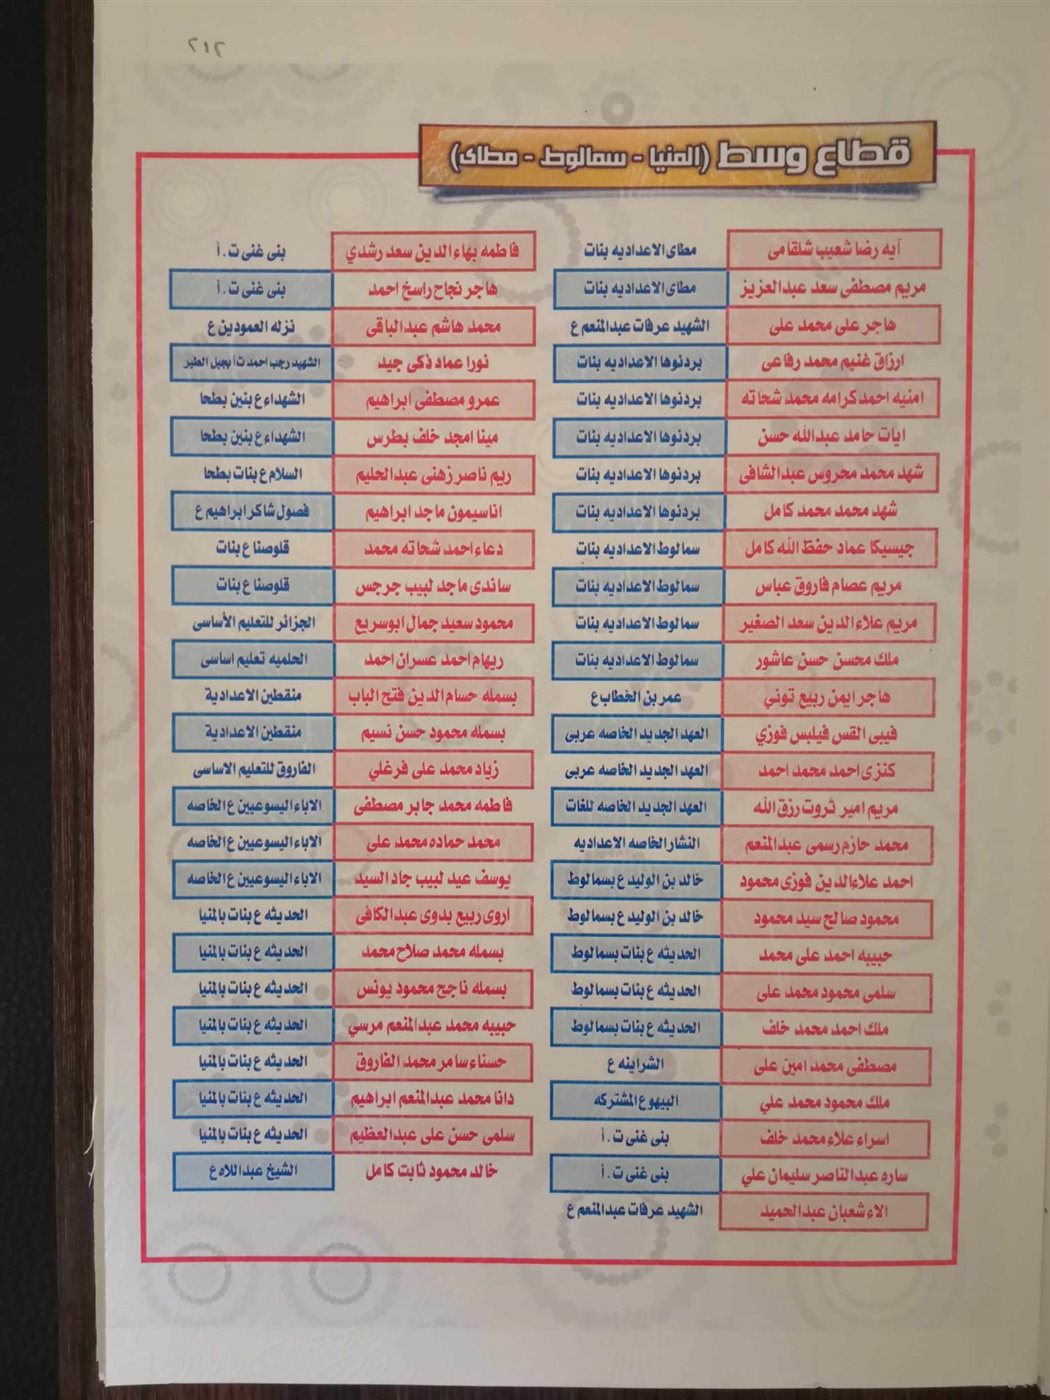 ٢١٢
قطاع وسط (المنيا - سمالوط - مطاى)
آيه رضا شعيب شلقامى مطاى الاعداديه بنات
مريم مصطفى سعد عبدالعزيز مطاى الاعداديه بنات
هاجر على محمد على الشهيد عرفات عبدالمنعم ع
ارزاق غنيم محمد رفاعى بردنوها الاعداديه بنات
امنيه احمد كرامه محمد شحاته بردنوها الاعداديه بنات
ايات حامد عبدالله حسن بردنوها الاعداديه بنات
شهد محمد محروس عبدالشافى بردنوها الاعداديه بنات
شهد محمد محمد كامل بردنوها الاعداديه بنات
جيسيكا عماد حفظ الله كامل سمالوط الاعداديه بنات
مريم عصام فاروق عباس سمالوط الاعداديه بنات
مريم علاء الدين سعد الصغير سمالوط الاعداديه بنات
ملك محسن حسن عاشور سمالوط الاعداديه بنات
هاجر ايمن ربيع توني عمر بن الخطاب ع
فيبى القس فيلبس فوزي العهد الجديد الخاصه عربى
كنزى احمد محمد احمد العهد الجديد الخاصه عربى
مريم امير ثروت رزق الله العهد الجديد الخاصه للغات
محمد حازم رسمى عبدالمنعم النشار الخاصه الاعداديه
احمد علاءالدين فوزى محمود خالد بن الوليد ع بسمالوط
محمود صالح سيد محمود خالد بن الوليد ع بسمالوط
حبيبه احمد على محمد الحديثه ع بنات بسمالوط
سلمى محمود محمد على الحديثه ع بنات بسمالوط
ملك احمد محمد خلف الحديثه ع بنات بسمالوط
مصطفى محمد امين على الشراينه ع
ملك محمود محمد علي البيهو ع المشتركه
اسراء علاء محمد خلف بنى غنى ت . أ
ساره عبدالناصر سليمان علي بنى غنى ت . أ
الاء شعبان عبدالحميد الشهيد عرفات عبدالمنعم ع
فاطمه بهاء الدين سعد رشدي بنى غنى ت . أ
هاجر نجاح راسخ احمد بنى غنى ت . أ
محمد هاشم عبدالباقى نزله العمودين ع
نورا عماد ذكى جيد الشهيد رجب احمد ت أ بجبل الطير
عمرو مصطفى ابراهيم الشهداء ع بنين بطحا
مينا امجد خلف بطرس الشهداء ع بنين بطحا
ريم ناصر زهنى عبدالحليم السلام ع بنات بطحا
اناسيمون ماجد ابراهيم فصول شاكر ابراهيم ع
دعاء احمد شحاته محمد قلوصنا ع بنات
ساندى ماجد لبيب جرجس قلوصنا ع بنات
محمود سعيد جمال ابوسريع الجزائر للتعليم الأساسى
ريهام احمد عسران احمد الحلميه تعليم اساسى
بسمله حسام الدين فتح الباب منقطين الاعدادية
بسمله محمود حسن نسيم منقطين الاعدادية
زياد محمد على فرغلي الفاروق للتعليم الاساسى
فاطمه محمد جابر مصطفى الاباء اليسوعيين ع الخاصه
محمد حماده محمد على الاباء اليسوعيين ع الخاصه
يوسف عيد لبيب جاد السيد الاباء اليسوعيين ع الخاصه
اروى ربيع بدوى عبدالكافى الحديثه ع بنات بالمنيا
بسمله محمد صلاح محمد الحديثه ع بنات بالمنيا
بسمله ناجح محمود يونس الحديثه ع بنات بالمنيا
حبيبه محمد عبدالمنعم مرسي الحديثه ع بنات بالمنيا
حسناء سامر محمد الفاروق الحديثه ع بنات بالمنيا
دانا محمد عبدالمنعم ابراهيم الحديثه ع بنات بالمنيا
سلمى حسن على عبدالعظيم الحديثه ع بنات بالمنيا
خالد محمود ثابت كامل الشيخ عبداللاه ع